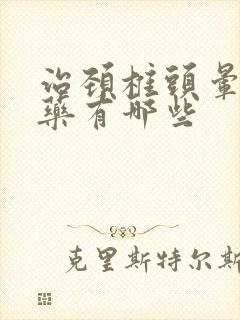 治頸椎頭暈
藥有哪些
克里斯特尔斯